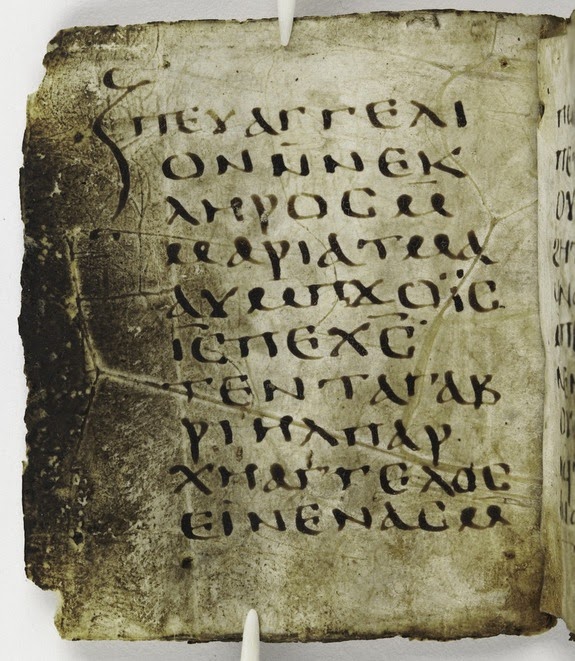 ⲡⲉⲩⲁⲅⲅⲉⲗⲓ
ⲟⲛⲛ̄ⲛⲉⲕ
ⲗⲏⲣⲟⲥⲙ̄
ⲙⲁⲣⲓⲁⲧⲙⲁ
ⲁⲩⲙⲡϫⲟⲓ̈ⲥ
ⲓ̅ⲥ̅ⲡⲉⲭ̅ⲥ̅
ⲧⲉⲛⲧⲁⲅⲁⲃ
ⲣⲓⲏⲗⲡⲁⲣ
ⲭⲏⲁⲅⲅⲉⲗⲟⲥ
ⲉⲓ̈ⲛⲉⲛⲁⲥⲙ